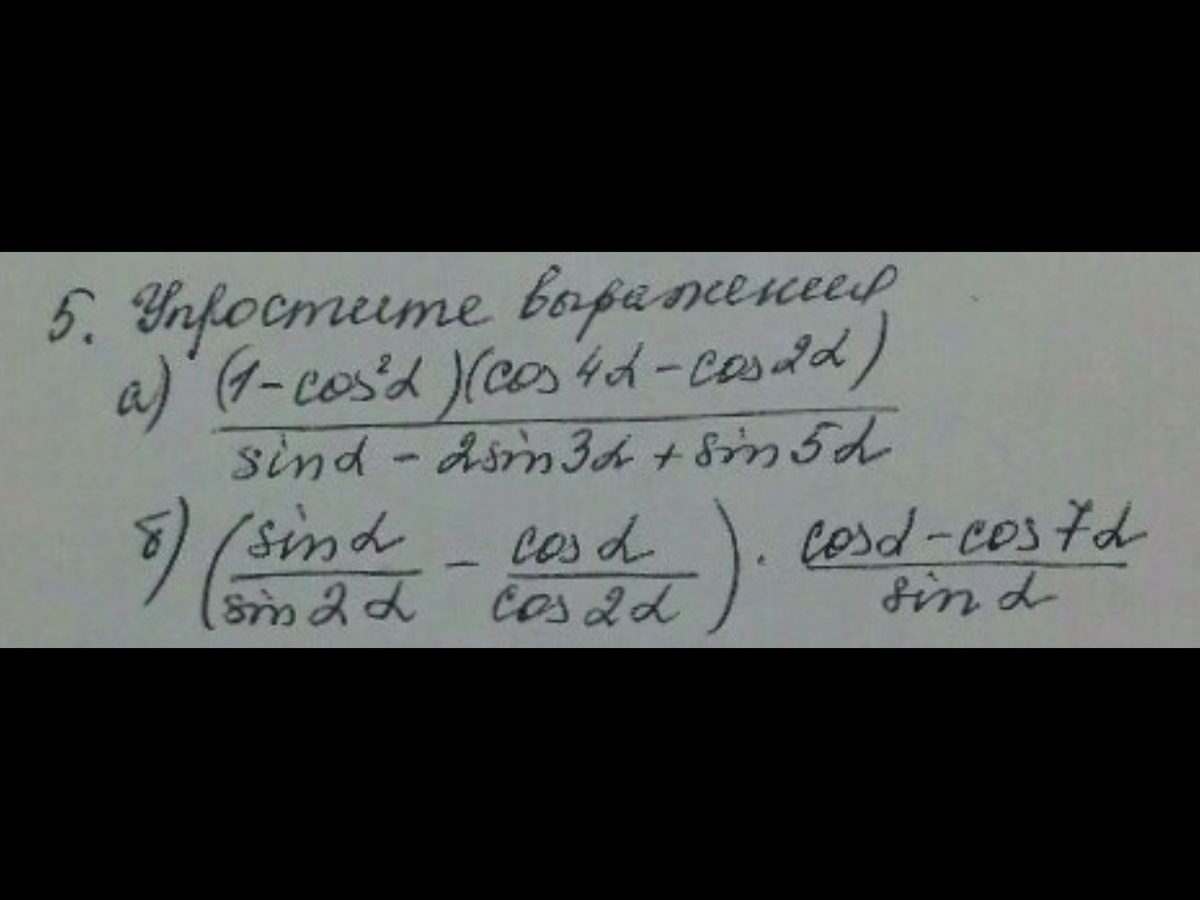 5. Упростите выражения
а) (1-cos²α)(cos4α-cos2α)
sinα - 2sin3α + sin5α
б) (sinα/sin2α - cosα/cos2α) · cosα-cos7α/sinα